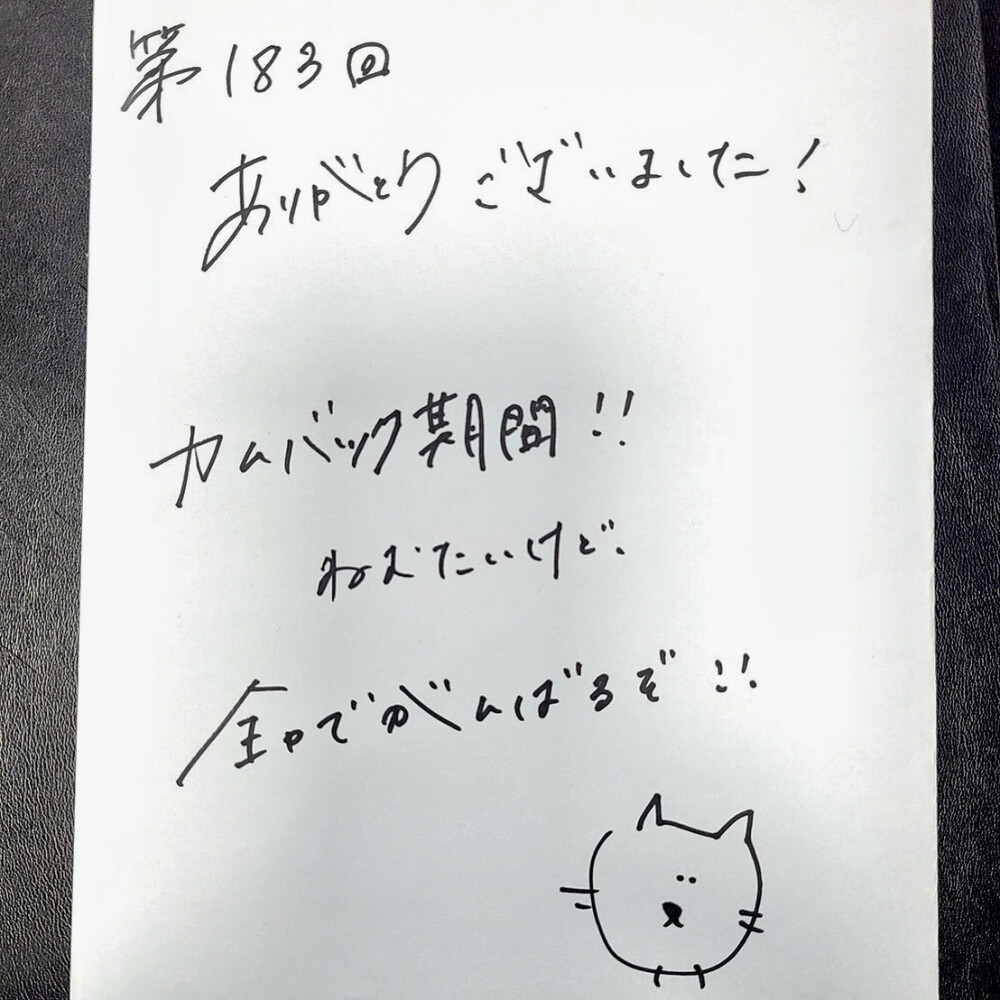 第183回
ありがとうございました!
カムバック期間!!
ねむたいけど、
全力でがんばるぞ!!